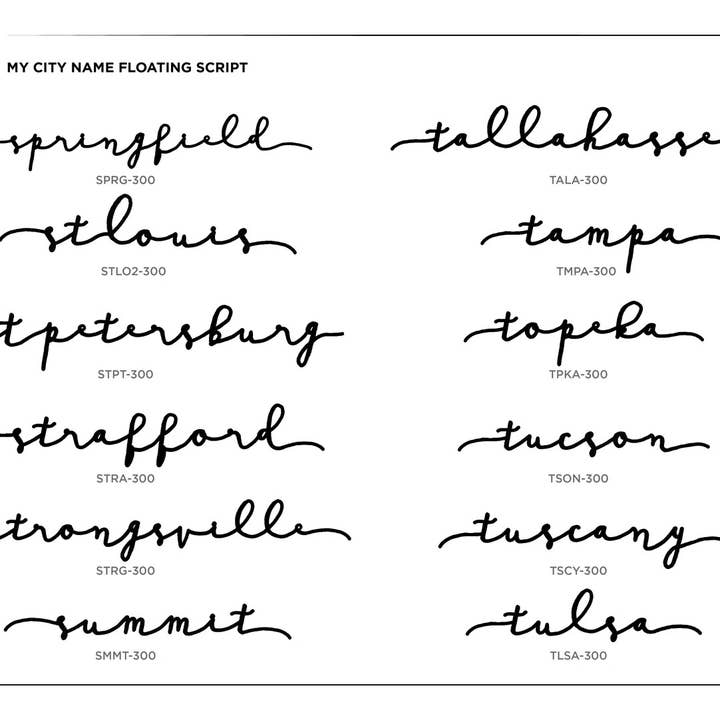 MY CITY NAME FLOATING SCRIPT
springfield
SPRG-300
stlouis
STLO2-300
tpetersburg
STPT-300
strafford
STRA-300
trongsville
STRG-300
summit
SMMT-300
tallahasse
TALA-300
tampa
TMPA-300
topeka
TPKA-300
tucson
TSON-300
tuscany
TSCY-300
tulsa
TLSA-300